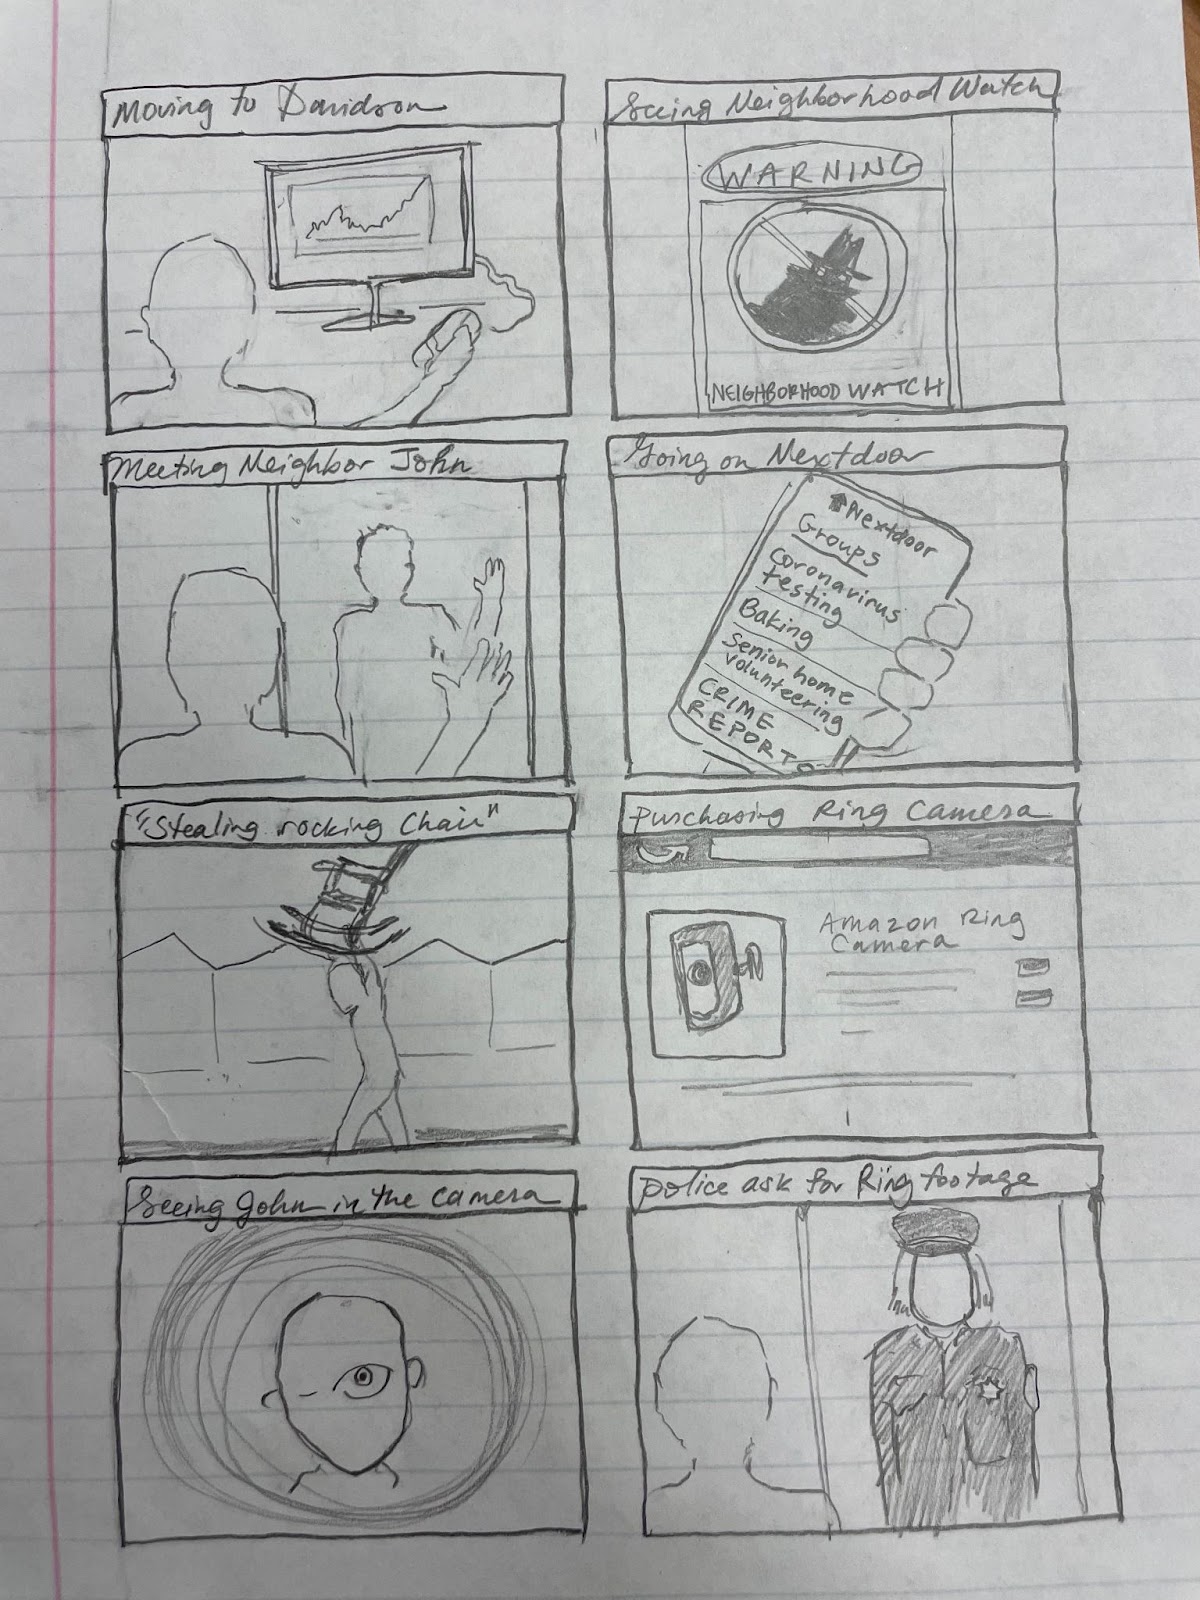 Moving to Davidson
Seeing Neighborhood Watch
WARNING
NEIGHBORHOOD WATCH
Meeting Neighbor John
Going on Nextdoor
Nextdoor
Groups
Coronavirus
testing
Baking
Senior home
volunteering
CRIME
REPORTS
"Stealing rocking Chair"
Purchasing Ring Camera
Amazon Ring
Camera
Seeing John in the camera
police ask for Ring footage